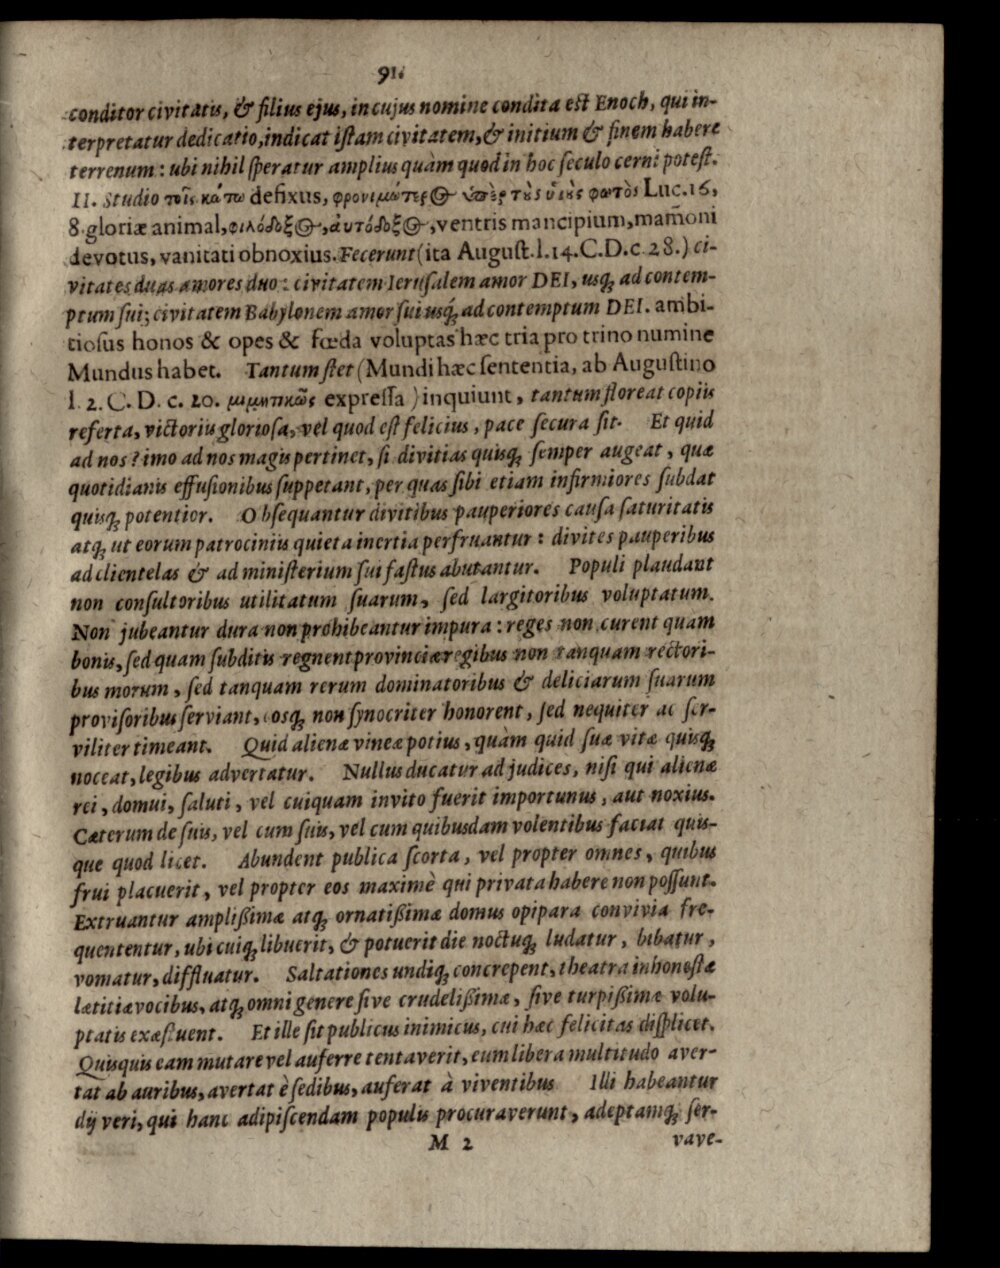 91.
conditor civitatis, & filius ejus, in cujus nomine condita est Enoch, qui in-
terpretatur dedicatio, indicat istam civitatem, & initium & finem habere
terrenum: ubi nihil speratur amplius quàm quod in hoc seculo cerni potest.
II. Studio τοῖς κάτω defixus, φρονιμώτερος ὑπὲρ τοὺς υἱοὺς φωτὸς Luc. 16,
8. gloriæ animal, φιλόδοξος, αὐτόδοξος, ventris mancipium, mam̃oni
devotus, vanitati obnoxius. Fecerunt (ita August. l. 14. C. D. c. 28.) ci-
vitates duas amores duo: civitatem Ierusalem amor DEI, usq; ad contem-
ptum sui; civitatem Babylonem amor sui usq; ad contemptum DEI. ambi-
tiosus honos & opes & fœda voluptas hæc tria pro trino numine
Mundus habet. Tantum stet (Mundi hæc sententia, ab Augustino
l. 2. C. D. c. 20. μιμητικῶς expressa) inquiunt, tantum floreat copiis
referta, victoriis gloriosa, vel quod est felicius, pace secura sit. Et quid
ad nos? imo ad nos magis pertinet, si divitias quisq; semper augeat, quæ
quotidianis effusionibus suppetant, per quas sibi etiam infirmiores subdat
quisq; potentior. Obsequantur divitibus pauperiores causa saturitatis
atq; ut eorum patrociniis quieta inertia perfruantur: divites pauperibus
ad clientelas & ad ministerium sui fastus abutantur. Populi plaudant
non consultoribus utilitatum suarum, sed largitoribus voluptatum.
Non jubeantur dura non prohibeantur impura: reges non curent quam
bonis, sed quam subditis regnent provinciæ regibus non tanquam rectori-
bus morum, sed tanquam rerum dominatoribus & deliciarum suarum
provisoribus serviant, eosq; non synocriter honorent, sed nequiter ac ser-
viliter timeant. Quid alienæ vineæ potius, quàm quid suæ vitæ quisq;
noceat, legibus advertatur. Nullus ducatur ad judices, nisi qui alienæ
rei, domui, saluti, vel cuiquam invito fuerit importunus, aut noxius.
Cæterum de suis, vel cum suis, vel cum quibusdam volentibus faciat quis-
que quod licet. Abundent publica scorta, vel propter omnes, quibus
frui placuerit, vel propter eos maximè qui privata habere non possunt.
Extruantur amplißimæ atq; ornatißimæ domus opipara convivia fre-
quententur, ubi cuiq; libuerit, & potuerit die noctuq; ludatur, bibatur,
vomatur, diffluatur. Saltationes undiq; concrepent, theatra inhonestæ
lætitiæ vocibus, atq; omni genere sive crudelißimæ, sive turpißimæ volu-
ptatis exæstuent. Et ille sit publicus inimicus, cui hæc felicitas displicet.
Quisquis eam mutare vel auferre tentaverit, eum libera multitudo aver-
tat ab auribus, avertat è sedibus, auferat à viventibus Illi habeantur
dij veri, qui hanc adipiscendam populis procuraverunt, adeptamq; ser-
M 2
vave-